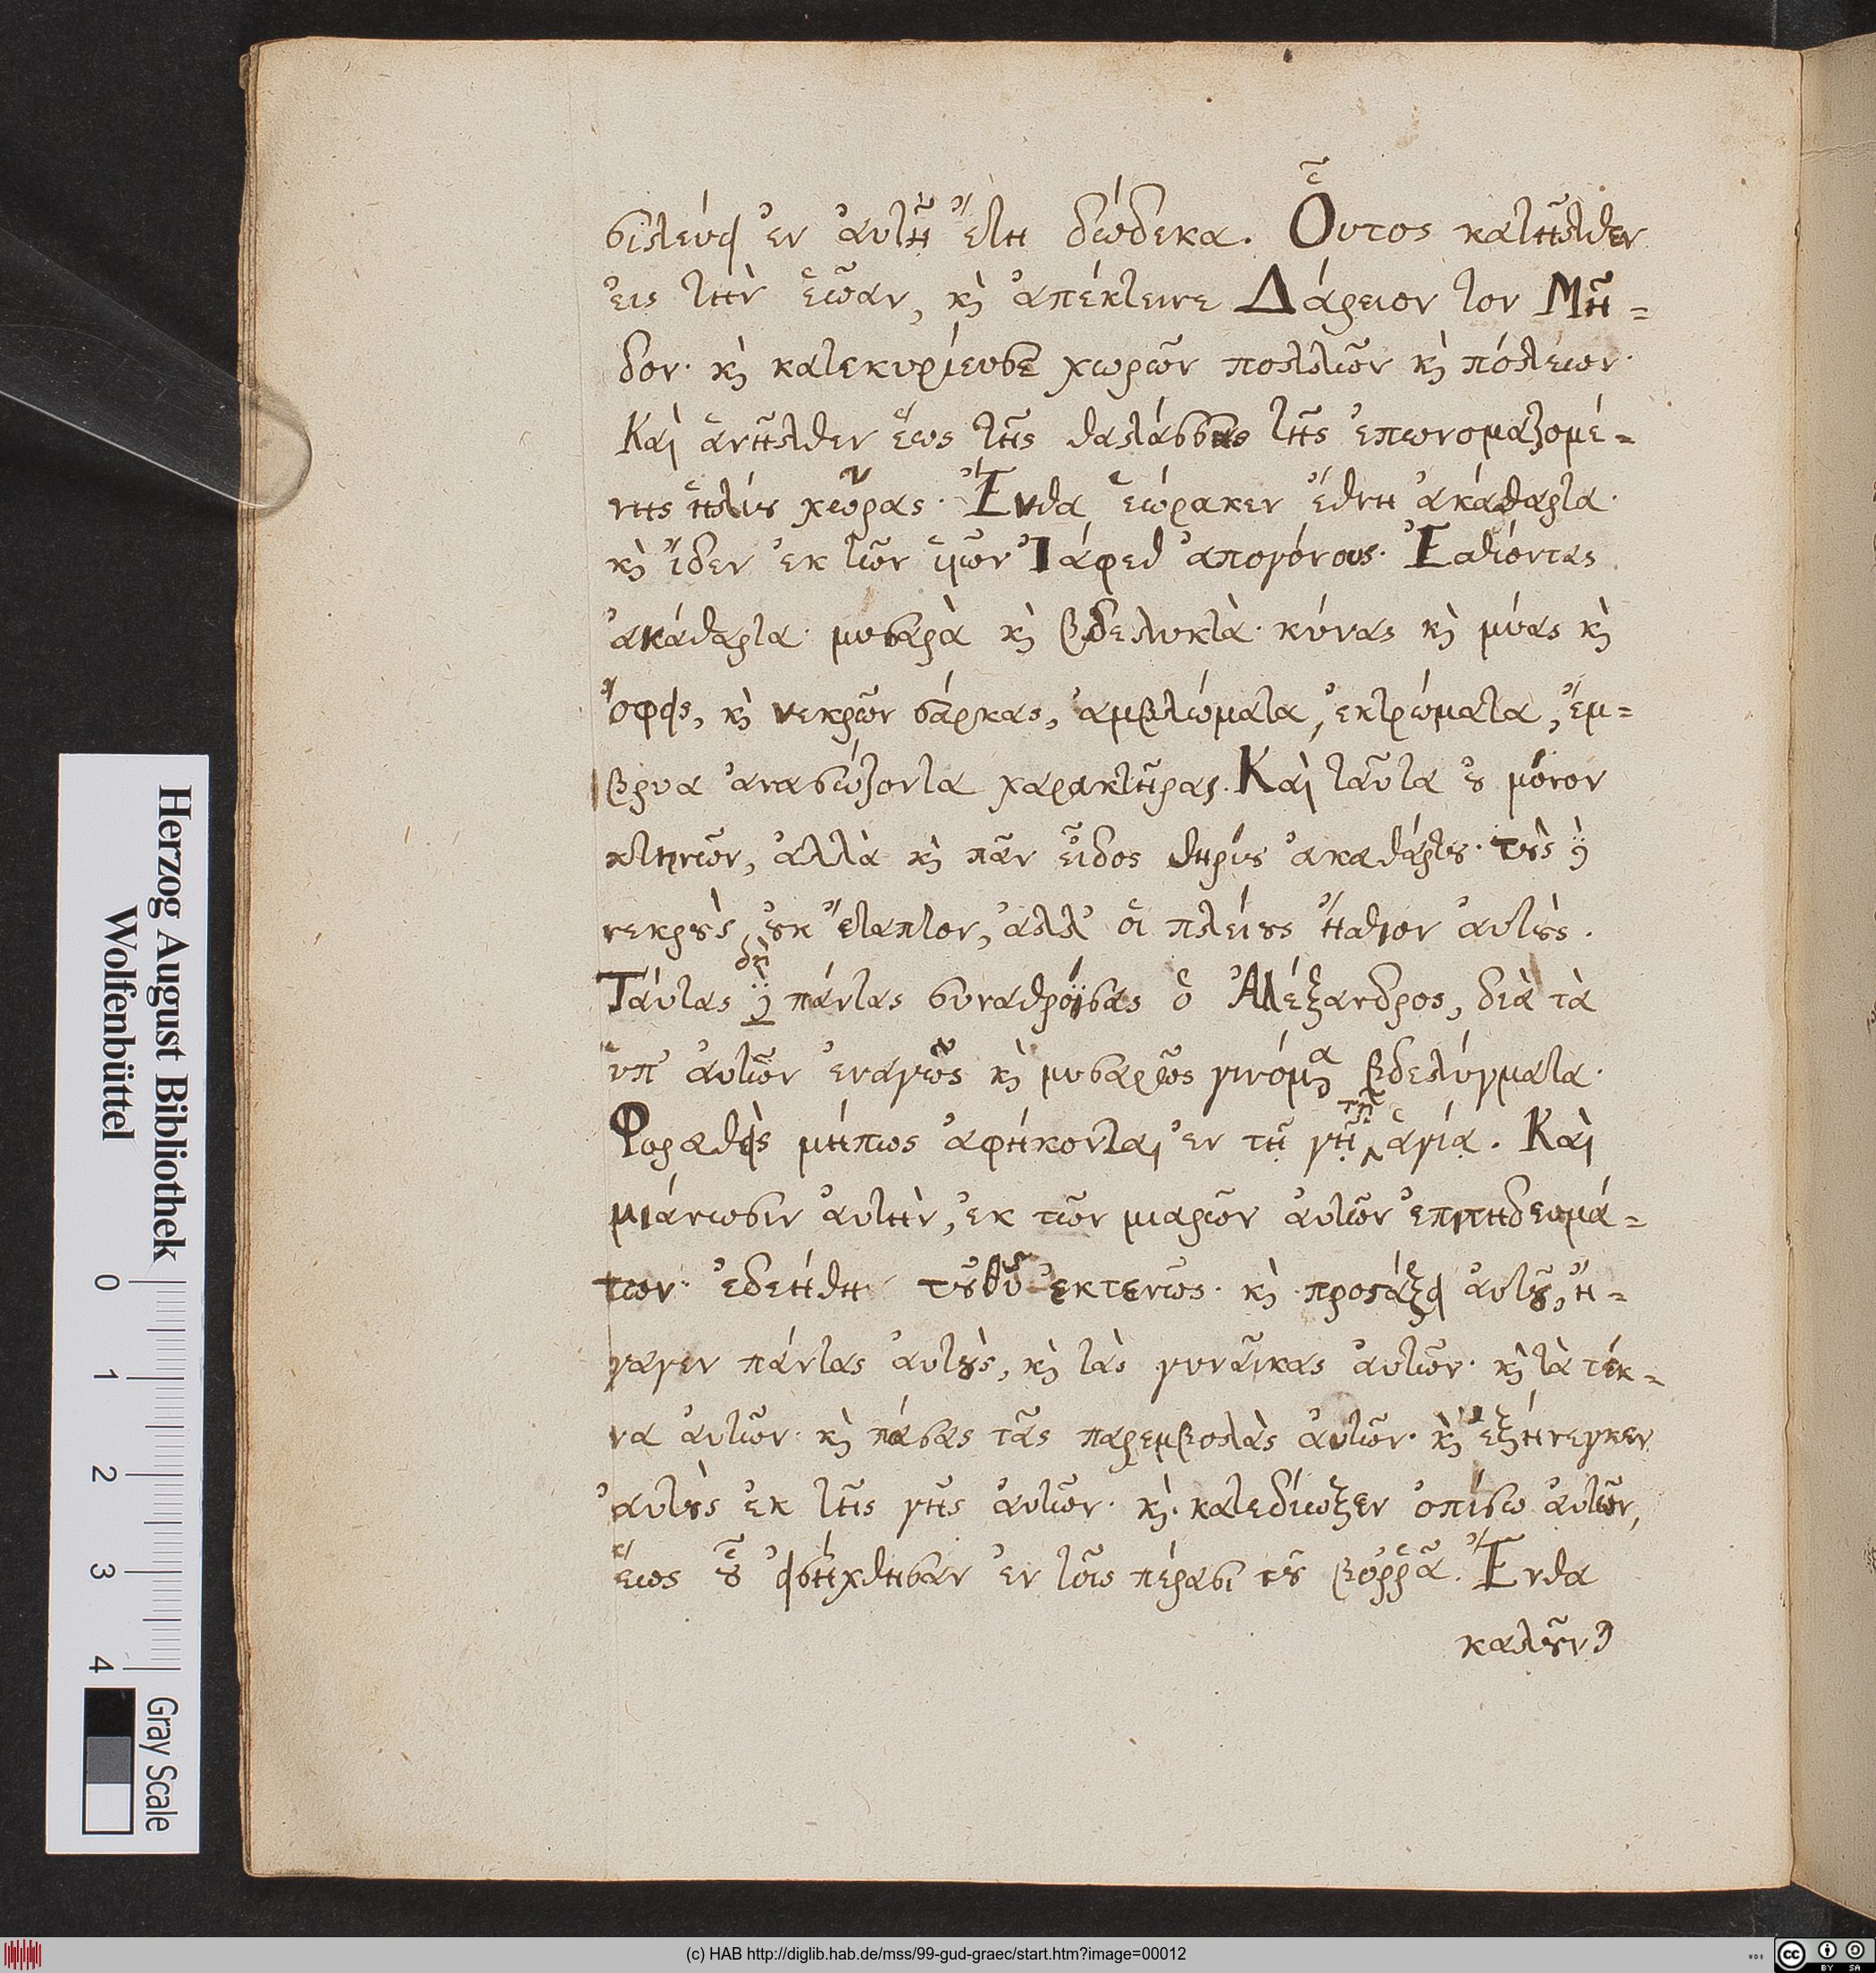 σιλεύει ἐν ἀυτῆ ἔτη δώδεκα. Οὗτος κατῆλθεν
ἐις τὴν ἑῶαν, κὶ ἀπέκτεινε Δάρειον τον Μῆ=
δον· κὶ κατεκυρίευσε χωρῶν πολλῶν κὶ πόλεων·
Καὶ ἀνῆλθεν ἕως τῆς θαλάσσης τῆς ἐπωνομαζομέ=
νης ἡλίου χῶρας· Ἔνθα ἑώρακεν ἔθνη ἀκάθαρτα·
κὶ ἴδεν ἐκ τῶν ὑιῶν Ἰάφεθ ἀπογόνους· Ἐσθίοντας
ἀκάθαρτα· μυσαρὰ κὶ βδελυκτὰ· κύνας κὶ μύας κὶ
ὄφεις, κὶ νεκρῶν σάρκας, ἀμβλώματα, ἐκτρώματα, ἔμ=
βρυα ἀνασώζοντα χαρακτῆρας. Καὶ ταῦτα οὐ μόνον
κτηνῶν, ἀλλὰ κὶ πᾶν εἶδος θηρίου ἀκαθάρτου· τοὺς
νεκροὺς, οὐκ ἔταπτον, ἀλλ' ὁι πλείους ἤσθιον ἀυτοὺς.
Τάυτας δὴ πάντας συναθροίσας ὁ Ἀλέξανδρος, διὰ τὰ
ὑπ' ἀυτῶν ἐναγῶς κὶ μυσαρῶς γινόμενα βδελύγματα·
Φοβηθεὶς μήπως ἀφήκονται ἐν τῆ γῆ τῆ ἁγία. Καὶ
μιάνωσιν ἀυτὴν, ἐκ τῶν μιαρῶν ἀυτῶν ἐπιτηδευμά=
των· ἐδεήθη τοῦ θῦ ἐκτενῶς· κὶ προστάξει ἀυτοῦ, ἤ=
γαγεν πάντας ἀυτοὺς, κὶ τὰς γυνᾶικας ἀυτῶν· κὶ τὰ τέκ=
να ἀυτῶν· κὶ πάσας τᾶς παρεμβολὰς ἀυτῶν· κὶ ἐξήνεγκεν
ἀυτοὺς ἐκ τῆς γῆς ἀυτῶν· κὶ κατεδίωξεν ὀπίσω ἀυτῶν,
ἕως οὗ εἰσήχθησαν ἐν τοῖς πέρασι τοῦ βοῤῥᾶ. Ἔνθα
καλοῦνται
Herzog August Bibliothek
Wolfenbüttel
0 1 2 3 4
Gray Scale
(c) HAB http://diglib.hab.de/mss/99-gud-graec/start.htm?image=00012
cc BY SA